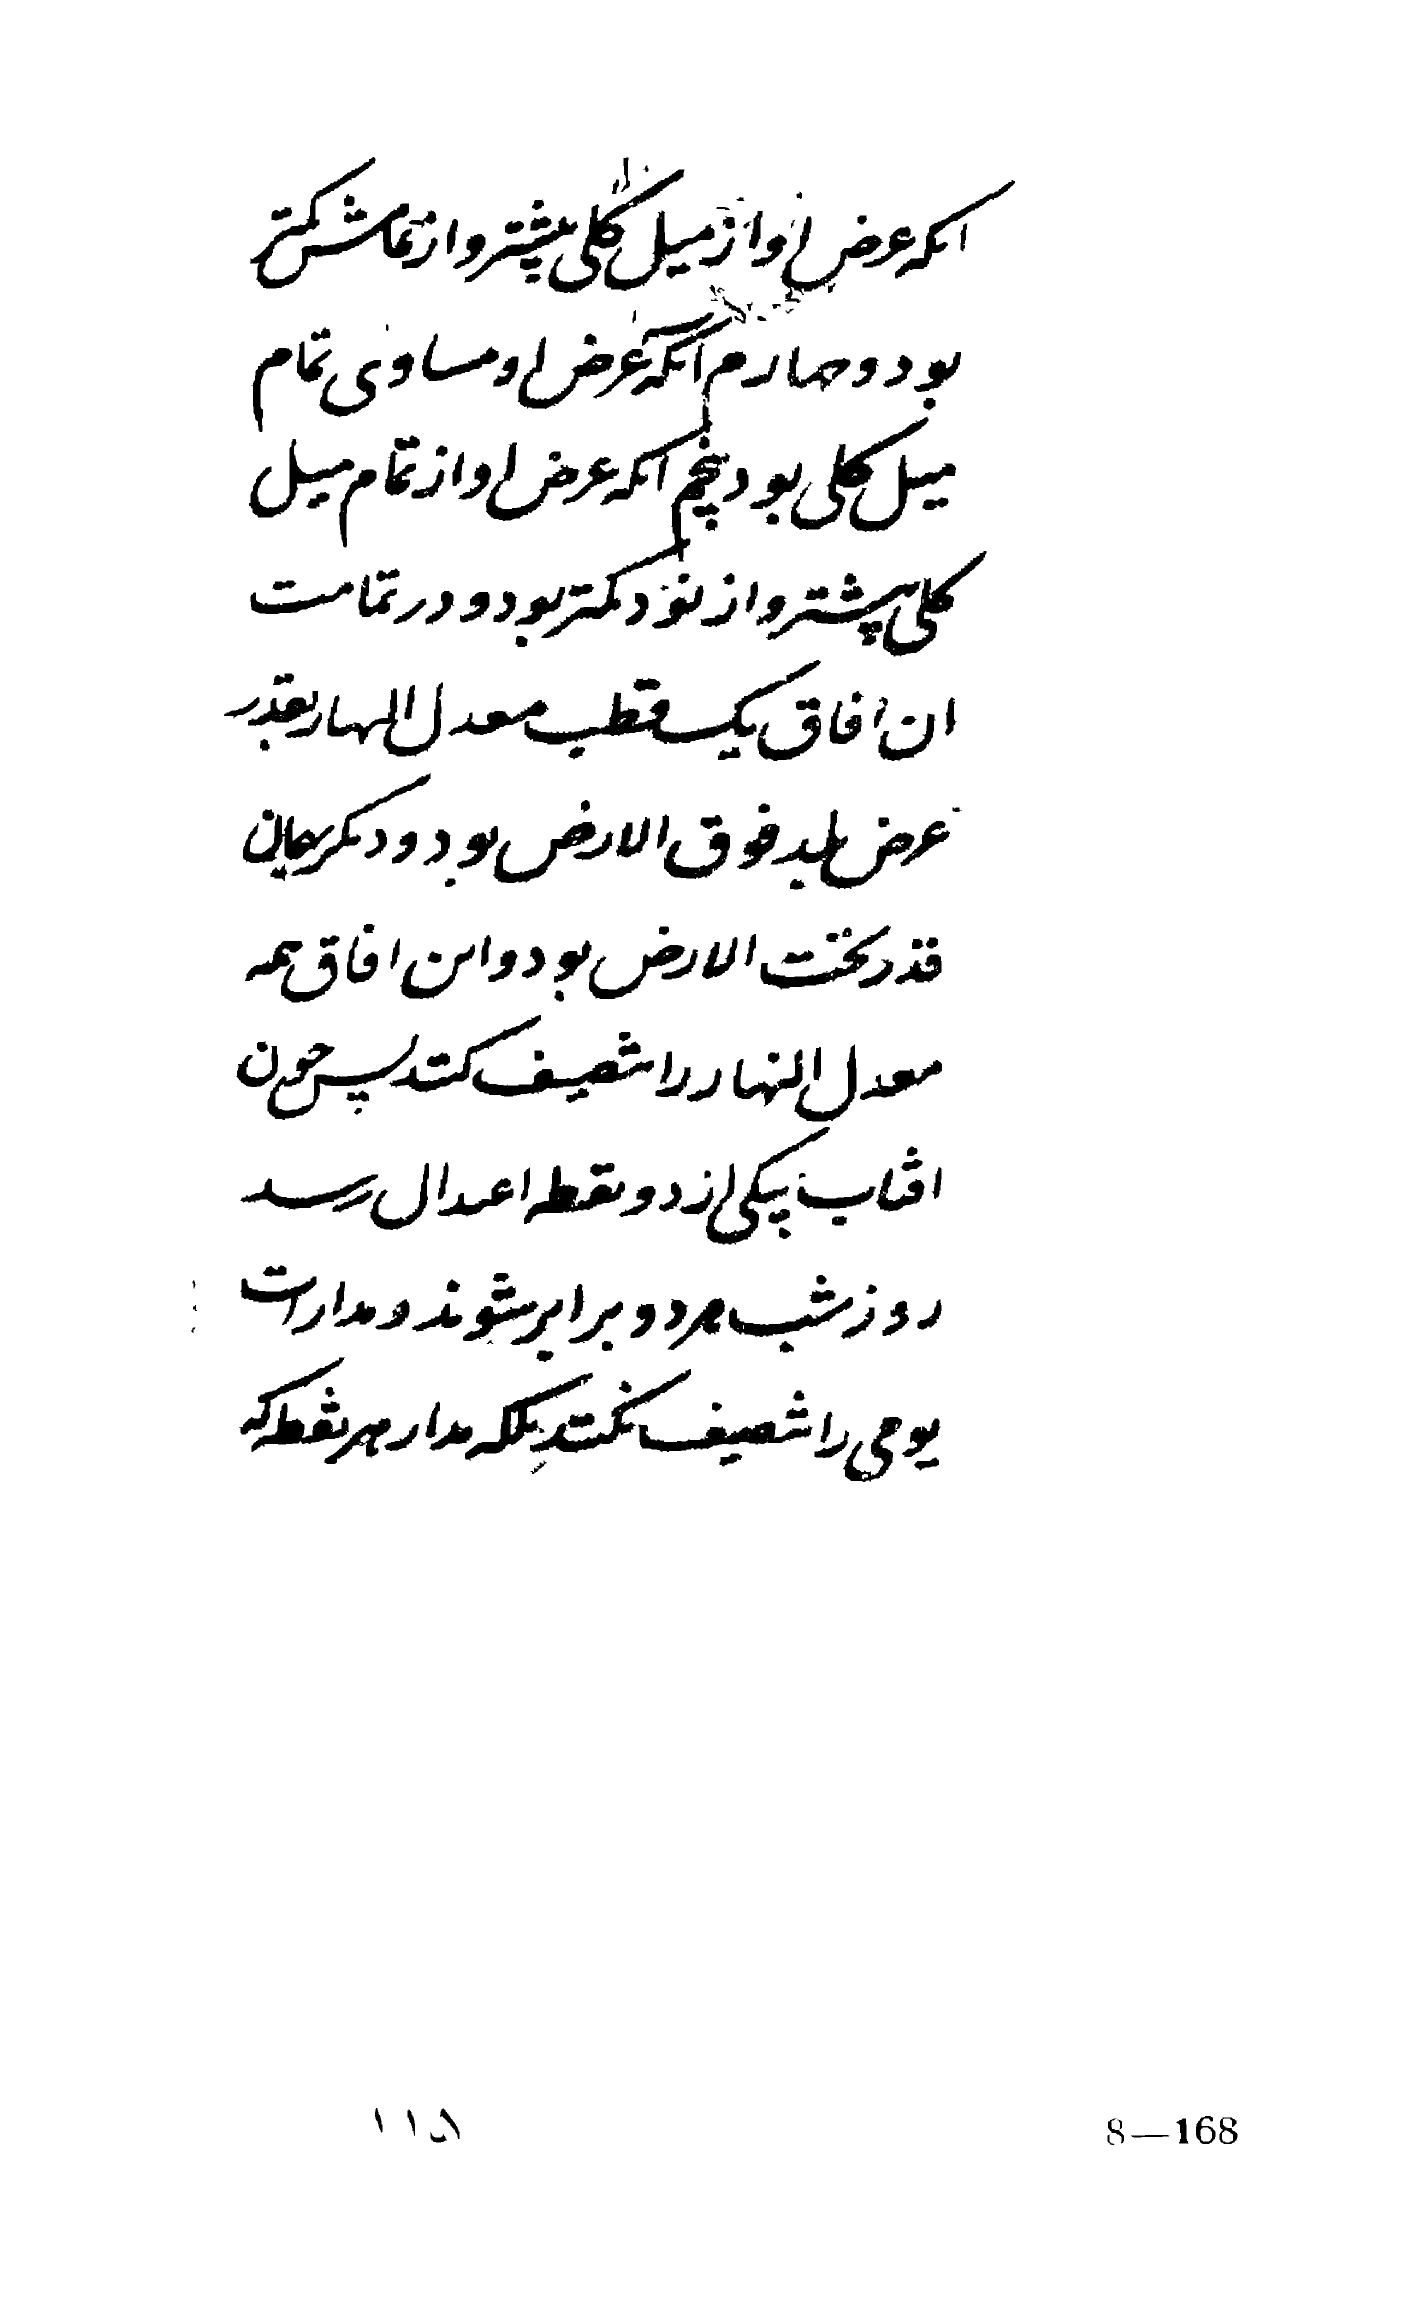 انکه عرض او از میل کلی بیشتر و از تمامش کمتر
بود و چهارم آنکه عرض او مساوی تمام
میل کلی بود پنجم انکه عرض او از تمام میل
کلی بیشتر و از نود کمتر بود و در تمامت
ان افاق یک قطب معدل النهار بقدر
عرض بلد فوق الارض بود و دیکر بهمان
قدر تحت الارض بود و این افاق همه
معدل النهار را تنصیف کنند پس چون
افتاب بیکی از دو نقطه اعتدال رسد
روز شب هر دو برابر شوند و مدارات
یومی را تنصیف نکنند بلکه مدار هر نقطه که
۱۱۵
8—168